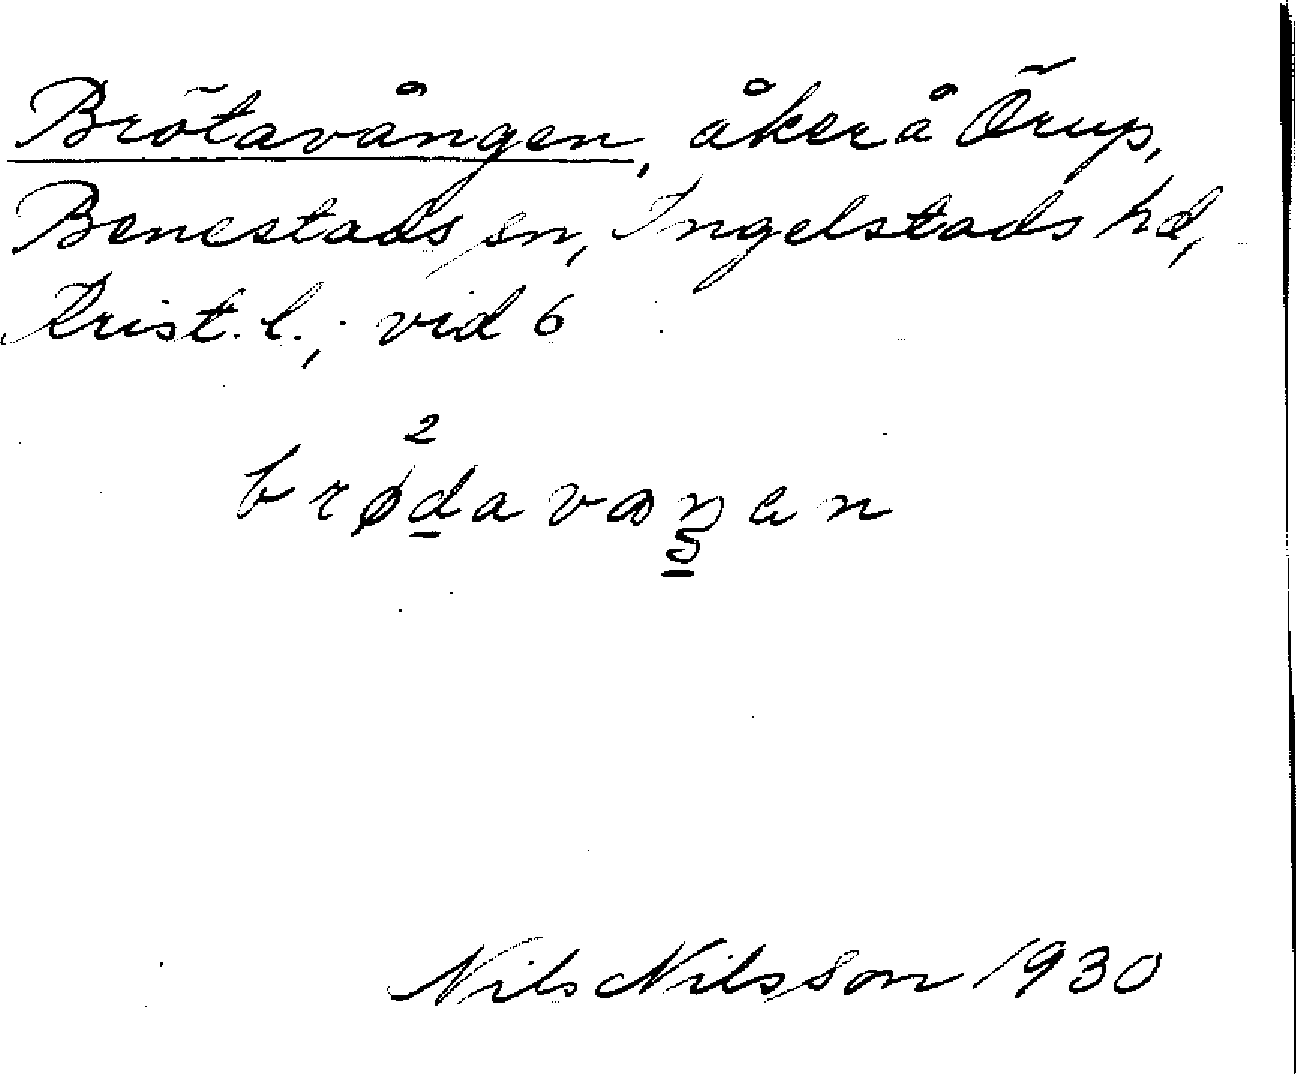 Brötavången, åker å Örup,
Benestads sn, Ingelstads hd,
Krist. l.; vid 6
2
brødavaŋan
5
Nils Nilsson 1930